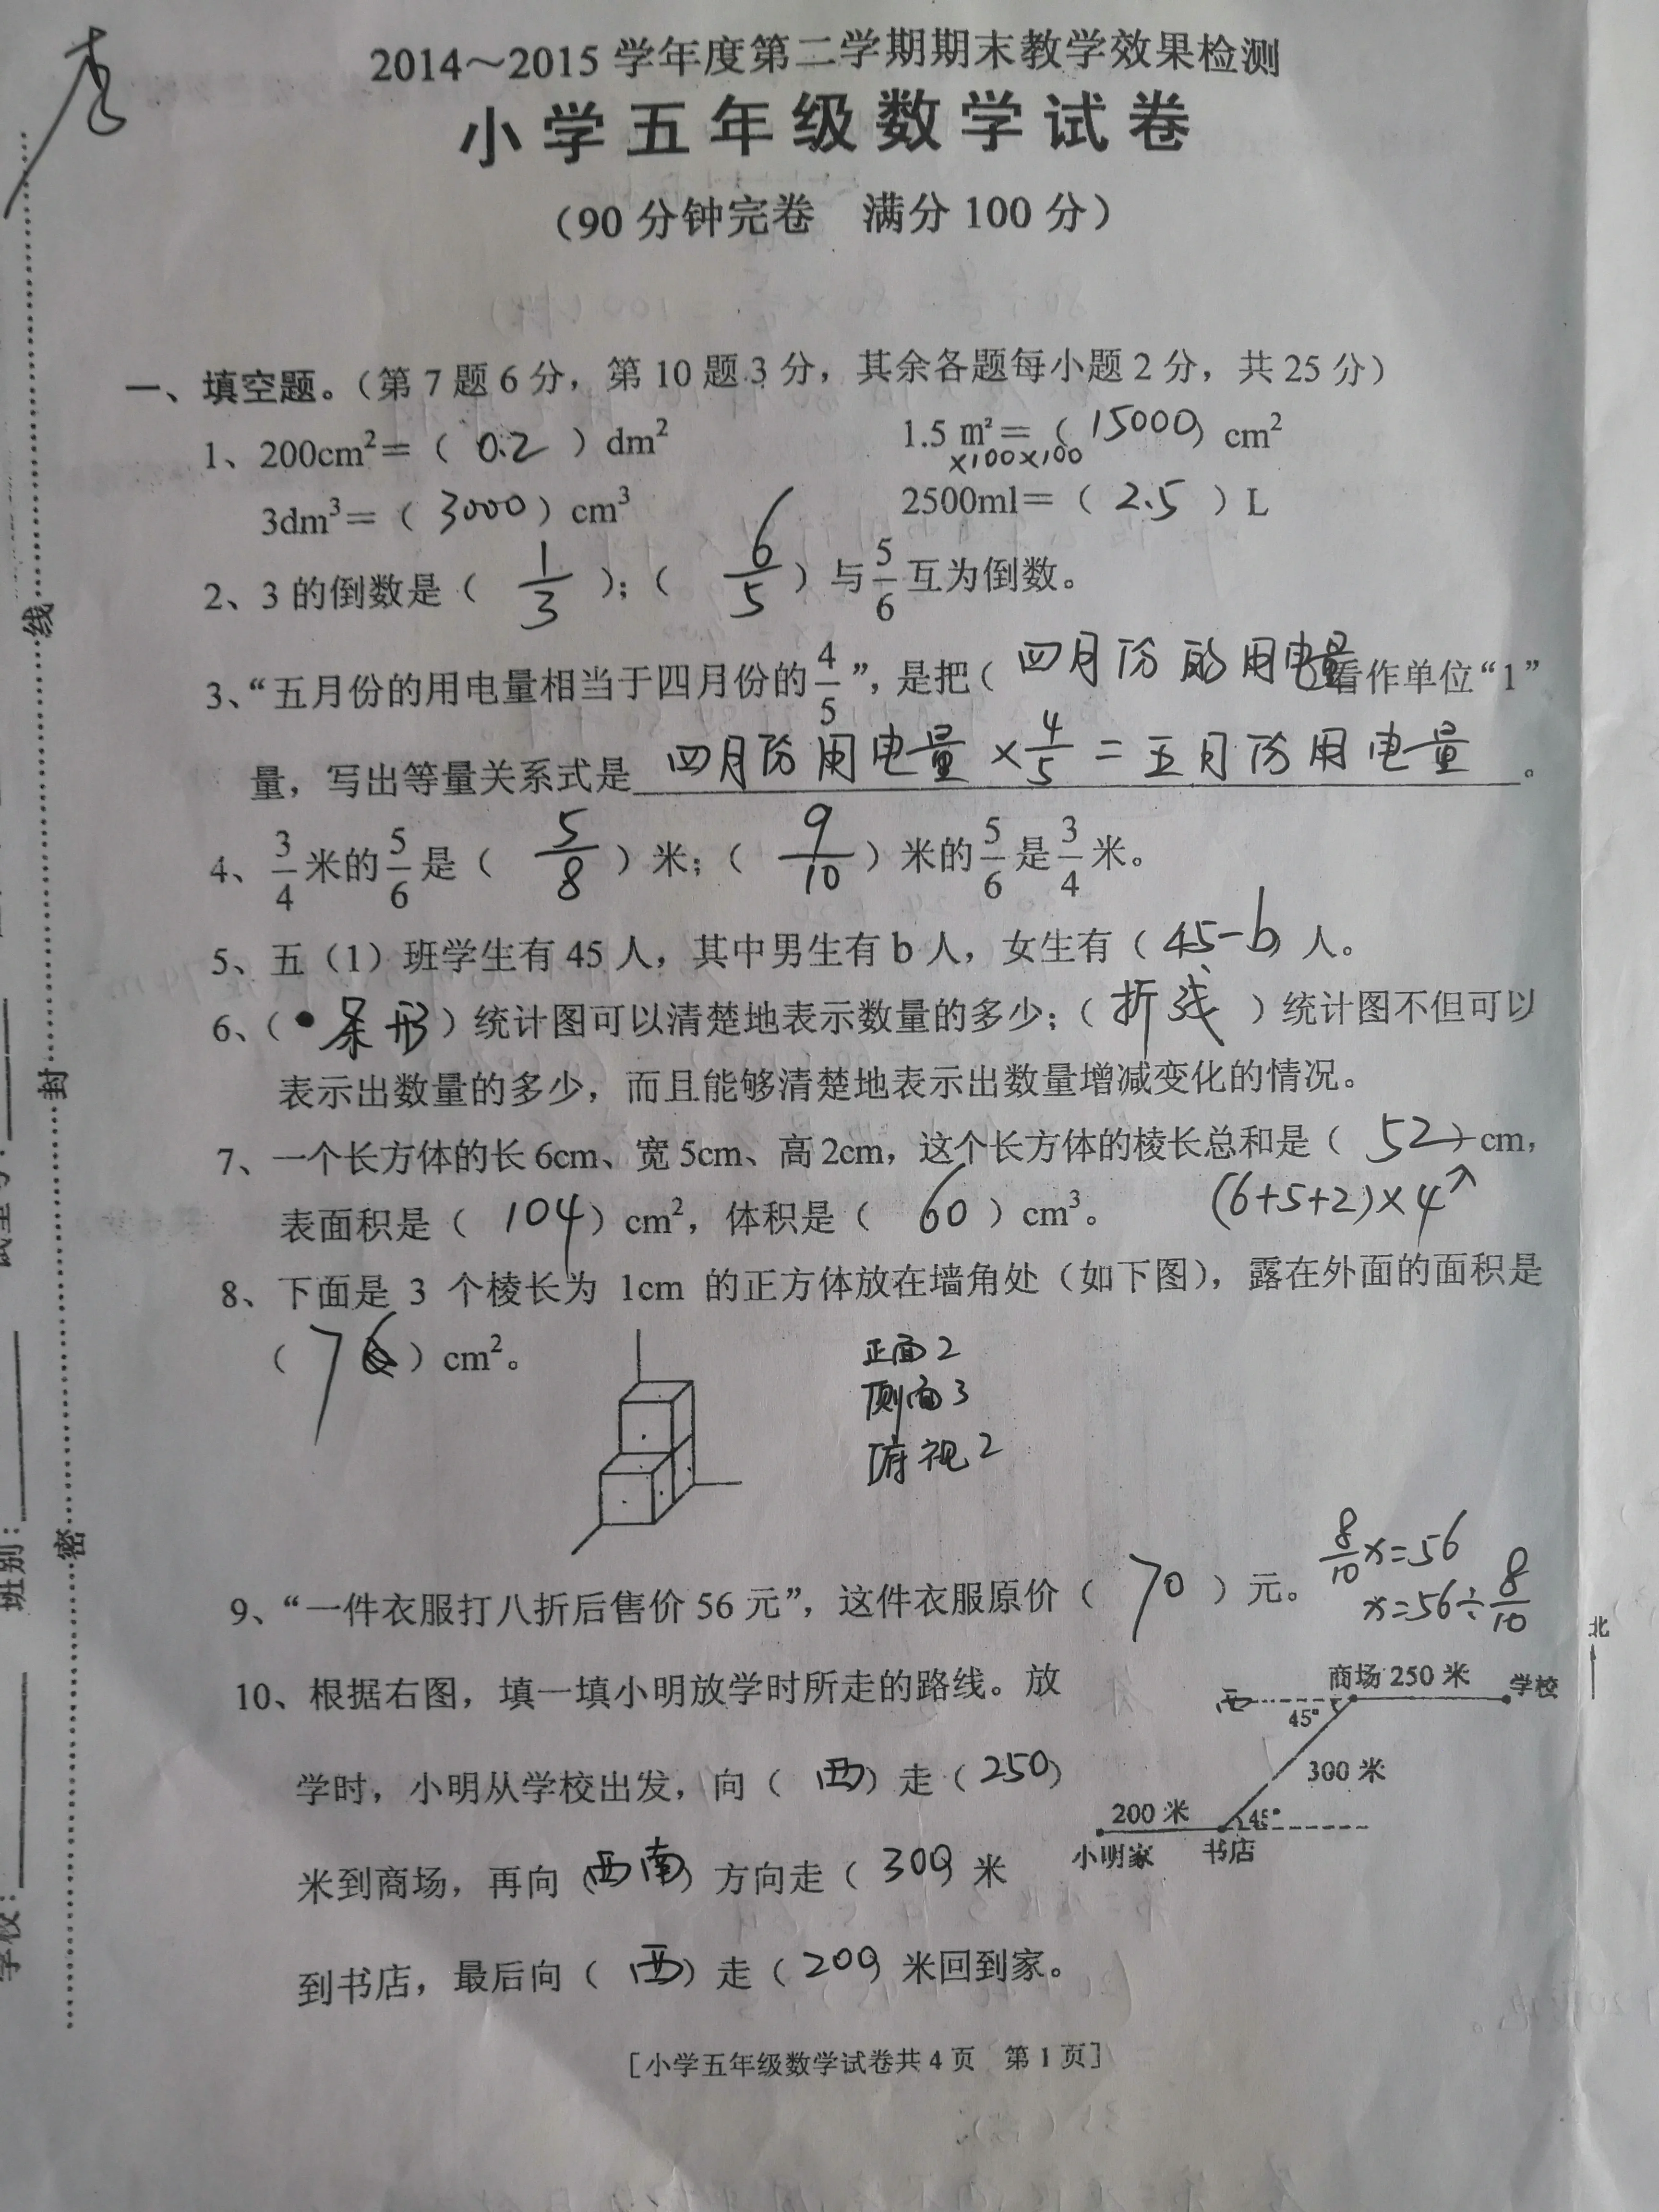 2014～2015 学年度第二学期期末教学效果检测
小学五年级数学试卷
（90 分钟完卷　满分 100 分）
一、填空题。（第 7 题 6 分，第 10 题 3 分，其余各题每小题 2 分，共 25 分）
1、200cm²＝（ 0.2 ）dm²　1.5 m²＝（ 15000 ）cm²
×100×100
3dm³＝（ 3000 ）cm³　2500ml＝（ 2.5 ）L
2、3 的倒数是（ 1/3 ）；（ 6/5 ）与 5/6 互为倒数。
3、“五月份的用电量相当于四月份的 4/5 ”，是把（ 四月份的用电量 ）看作单位“1”
量，写出等量关系式是 四月份用电量 × 4/5 = 五月份用电量 。
4、3/4 米的 5/6 是（ 5/8 ）米；（ 9/10 ）米的 5/6 是 3/4 米。
5、五（1）班学生有 45 人，其中男生有 b 人，女生有（ 45-b ）人。
6、（ 条形 ）统计图可以清楚地表示数量的多少；（ 折线 ）统计图不但可以
表示出数量的多少，而且能够清楚地表示出数量增减变化的情况。
7、一个长方体的长 6cm、宽 5cm、高 2cm，这个长方体的棱长总和是（ 52 ）cm，
表面积是（ 104 ）cm²，体积是（ 60 ）cm³。　(6+5+2)×4
8、下面是 3 个棱长为 1cm 的正方体放在墙角处（如下图），露在外面的面积是
（ 7 ）cm²。
正面 2
侧面 3
俯视 2
9、“一件衣服打八折后售价 56 元”，这件衣服原价（ 70 ）元。
8/10 x=56
x=56÷8/10
北
10、根据右图，填一填小明放学时所走的路线。放
学时，小明从学校出发，向（ 西 ）走（ 250 ）
米到商场，再向（ 西南 ）方向走（ 300 ）米
到书店，最后向（ 西 ）走（ 200 ）米回到家。
西　商场 250 米　学校
45°
300 米
200 米　45°
小明家　书店
[小学五年级数学试卷共 4 页　第 1 页]
线
封
密
班别：
学校：